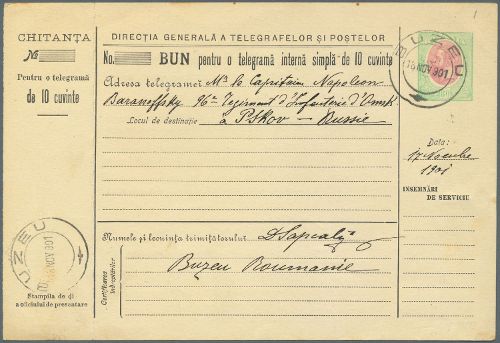 CHITANȚA
No
Pentru o telegramă
de 10 cuvinte
DIRECȚIA GENERALĂ A TELEGRAFELOR ȘI POȘTELOR
No. BUN pentru o telegramă internă simplă de 10 cuvinte
Adresa telegramei Mr le Capitain Napoleon
Baranoffsky 96me Regiment d'Infanterie d'Omsk
Locul de destinație à Pskov — Russie
BUZEU
16 NOV 901
Data:
17 Noembre
1901
INSEMNĂRI
DE SERVICIU
Numele și locuința trimițătorului
Buzeu Roumanie
Certificarea
indentităților
BUZEU
NOV 901
Stampila de zi
a oficiului de presentare